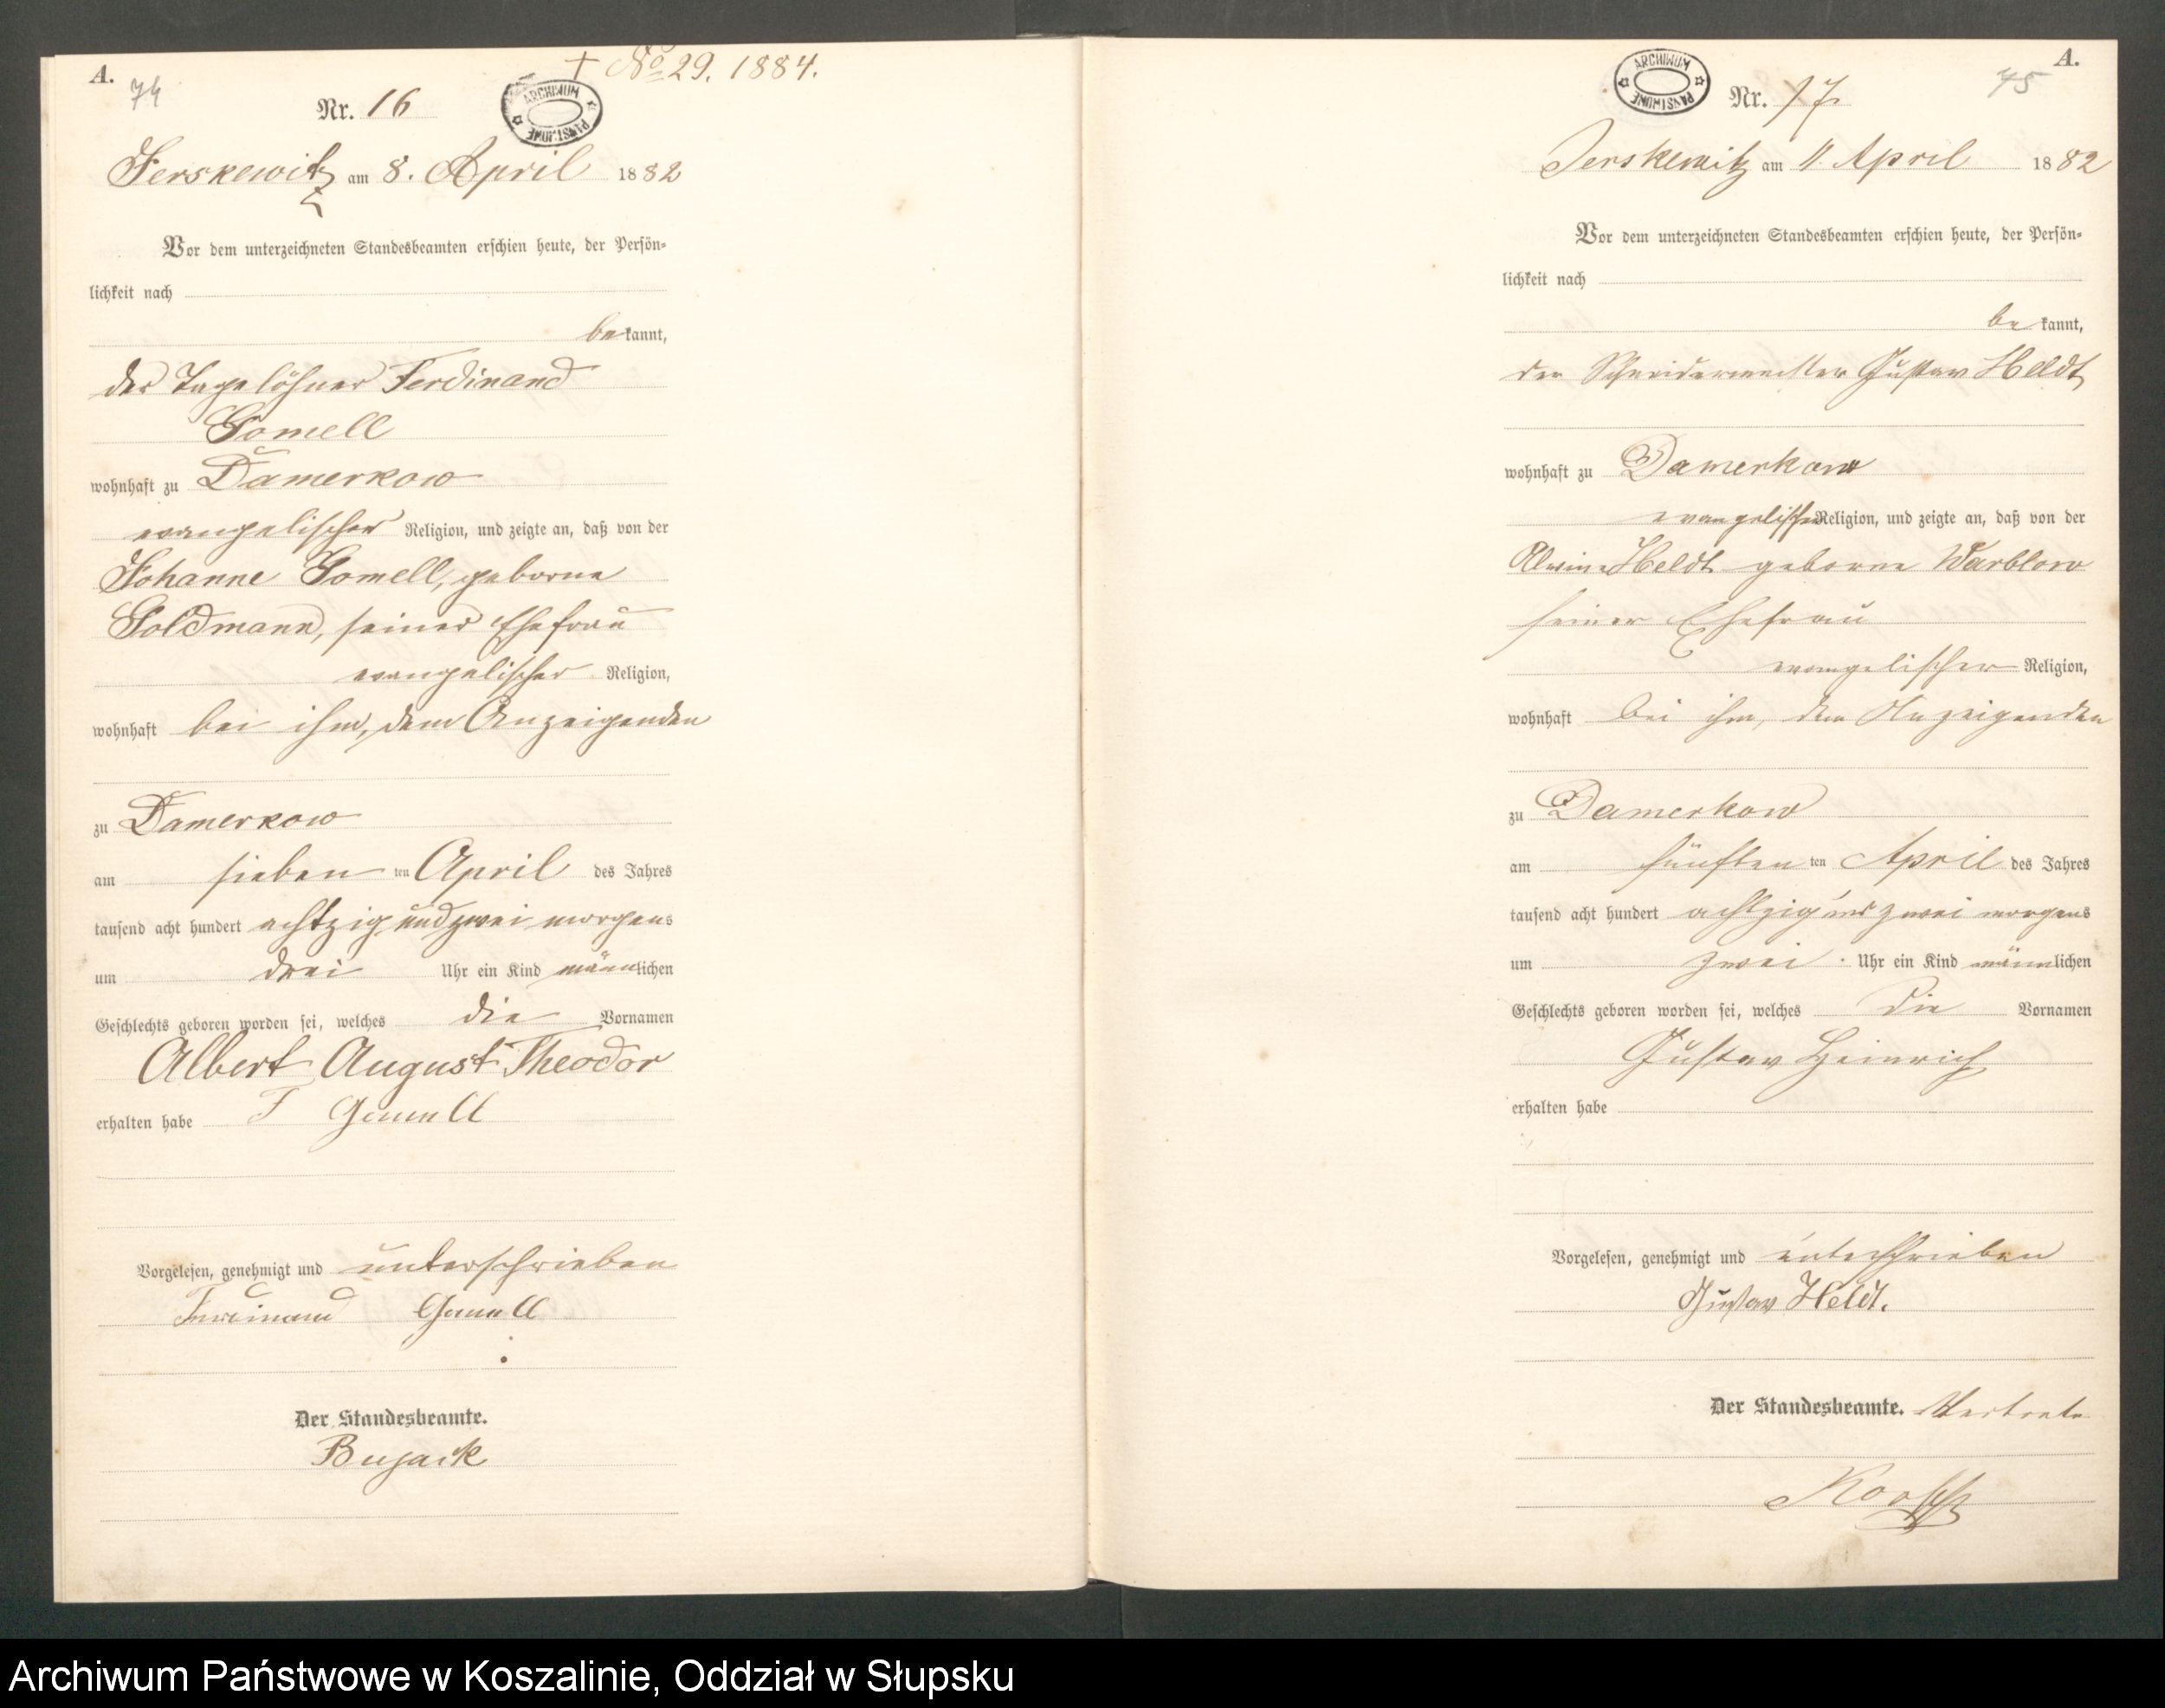 A.
74
† No 29. 1884.
Nr. 16
ARCHIWUM PAŃSTWOWE
Jerskewitz am 8. April 1882
Vor dem unterzeichneten Standesbeamten erschien heute, der Persön-
lichkeit nach
bekannt,
der Tagelöhner Ferdinand
Gomell
wohnhaft zu Damerkow
evangelischer Religion, und zeigte an, daß von der
Johanne Gomell, geborne
Goldmann, seiner Ehefrau
evangelischer Religion,
wohnhaft bei ihm, dem Anzeigenden
zu Damerkow
am sieben ten April des Jahres
tausend acht hundert achtzig und zwei morgens
um drei Uhr ein Kind männlichen
Geschlechts geboren worden sei, welches die Vornamen
Albert August Theodor
erhalten habe
Vorgelesen, genehmigt und unterschrieben
Ferdinand Gomell
Der Standesbeamte.
Bujack
A.
75
ARCHIWUM PAŃSTWOWE
Nr. 17
Jerskewitz am 11 April 1882
Vor dem unterzeichneten Standesbeamten erschien heute, der Persön-
lichkeit nach
bekannt,
der Schneidermeister Gustav Heldt
wohnhaft zu Damerkow
evangelischer Religion, und zeigte an, daß von der
Alwine Heldt geborne Warblow
seiner Ehefrau
evangelischer Religion,
wohnhaft bei ihm, dem Anzeigenden
zu Damerkow
am fünften ten April des Jahres
tausend acht hundert achtzig und zwei morgens
um zwei Uhr ein Kind männlichen
Geschlechts geboren worden sei, welches die Vornamen
Gustav Heinrich
erhalten habe
Vorgelesen, genehmigt und unterschrieben
Gustav Heldt.
Der Standesbeamte.
Archiwum Państwowe w Koszalinie, Oddział w Słupsku